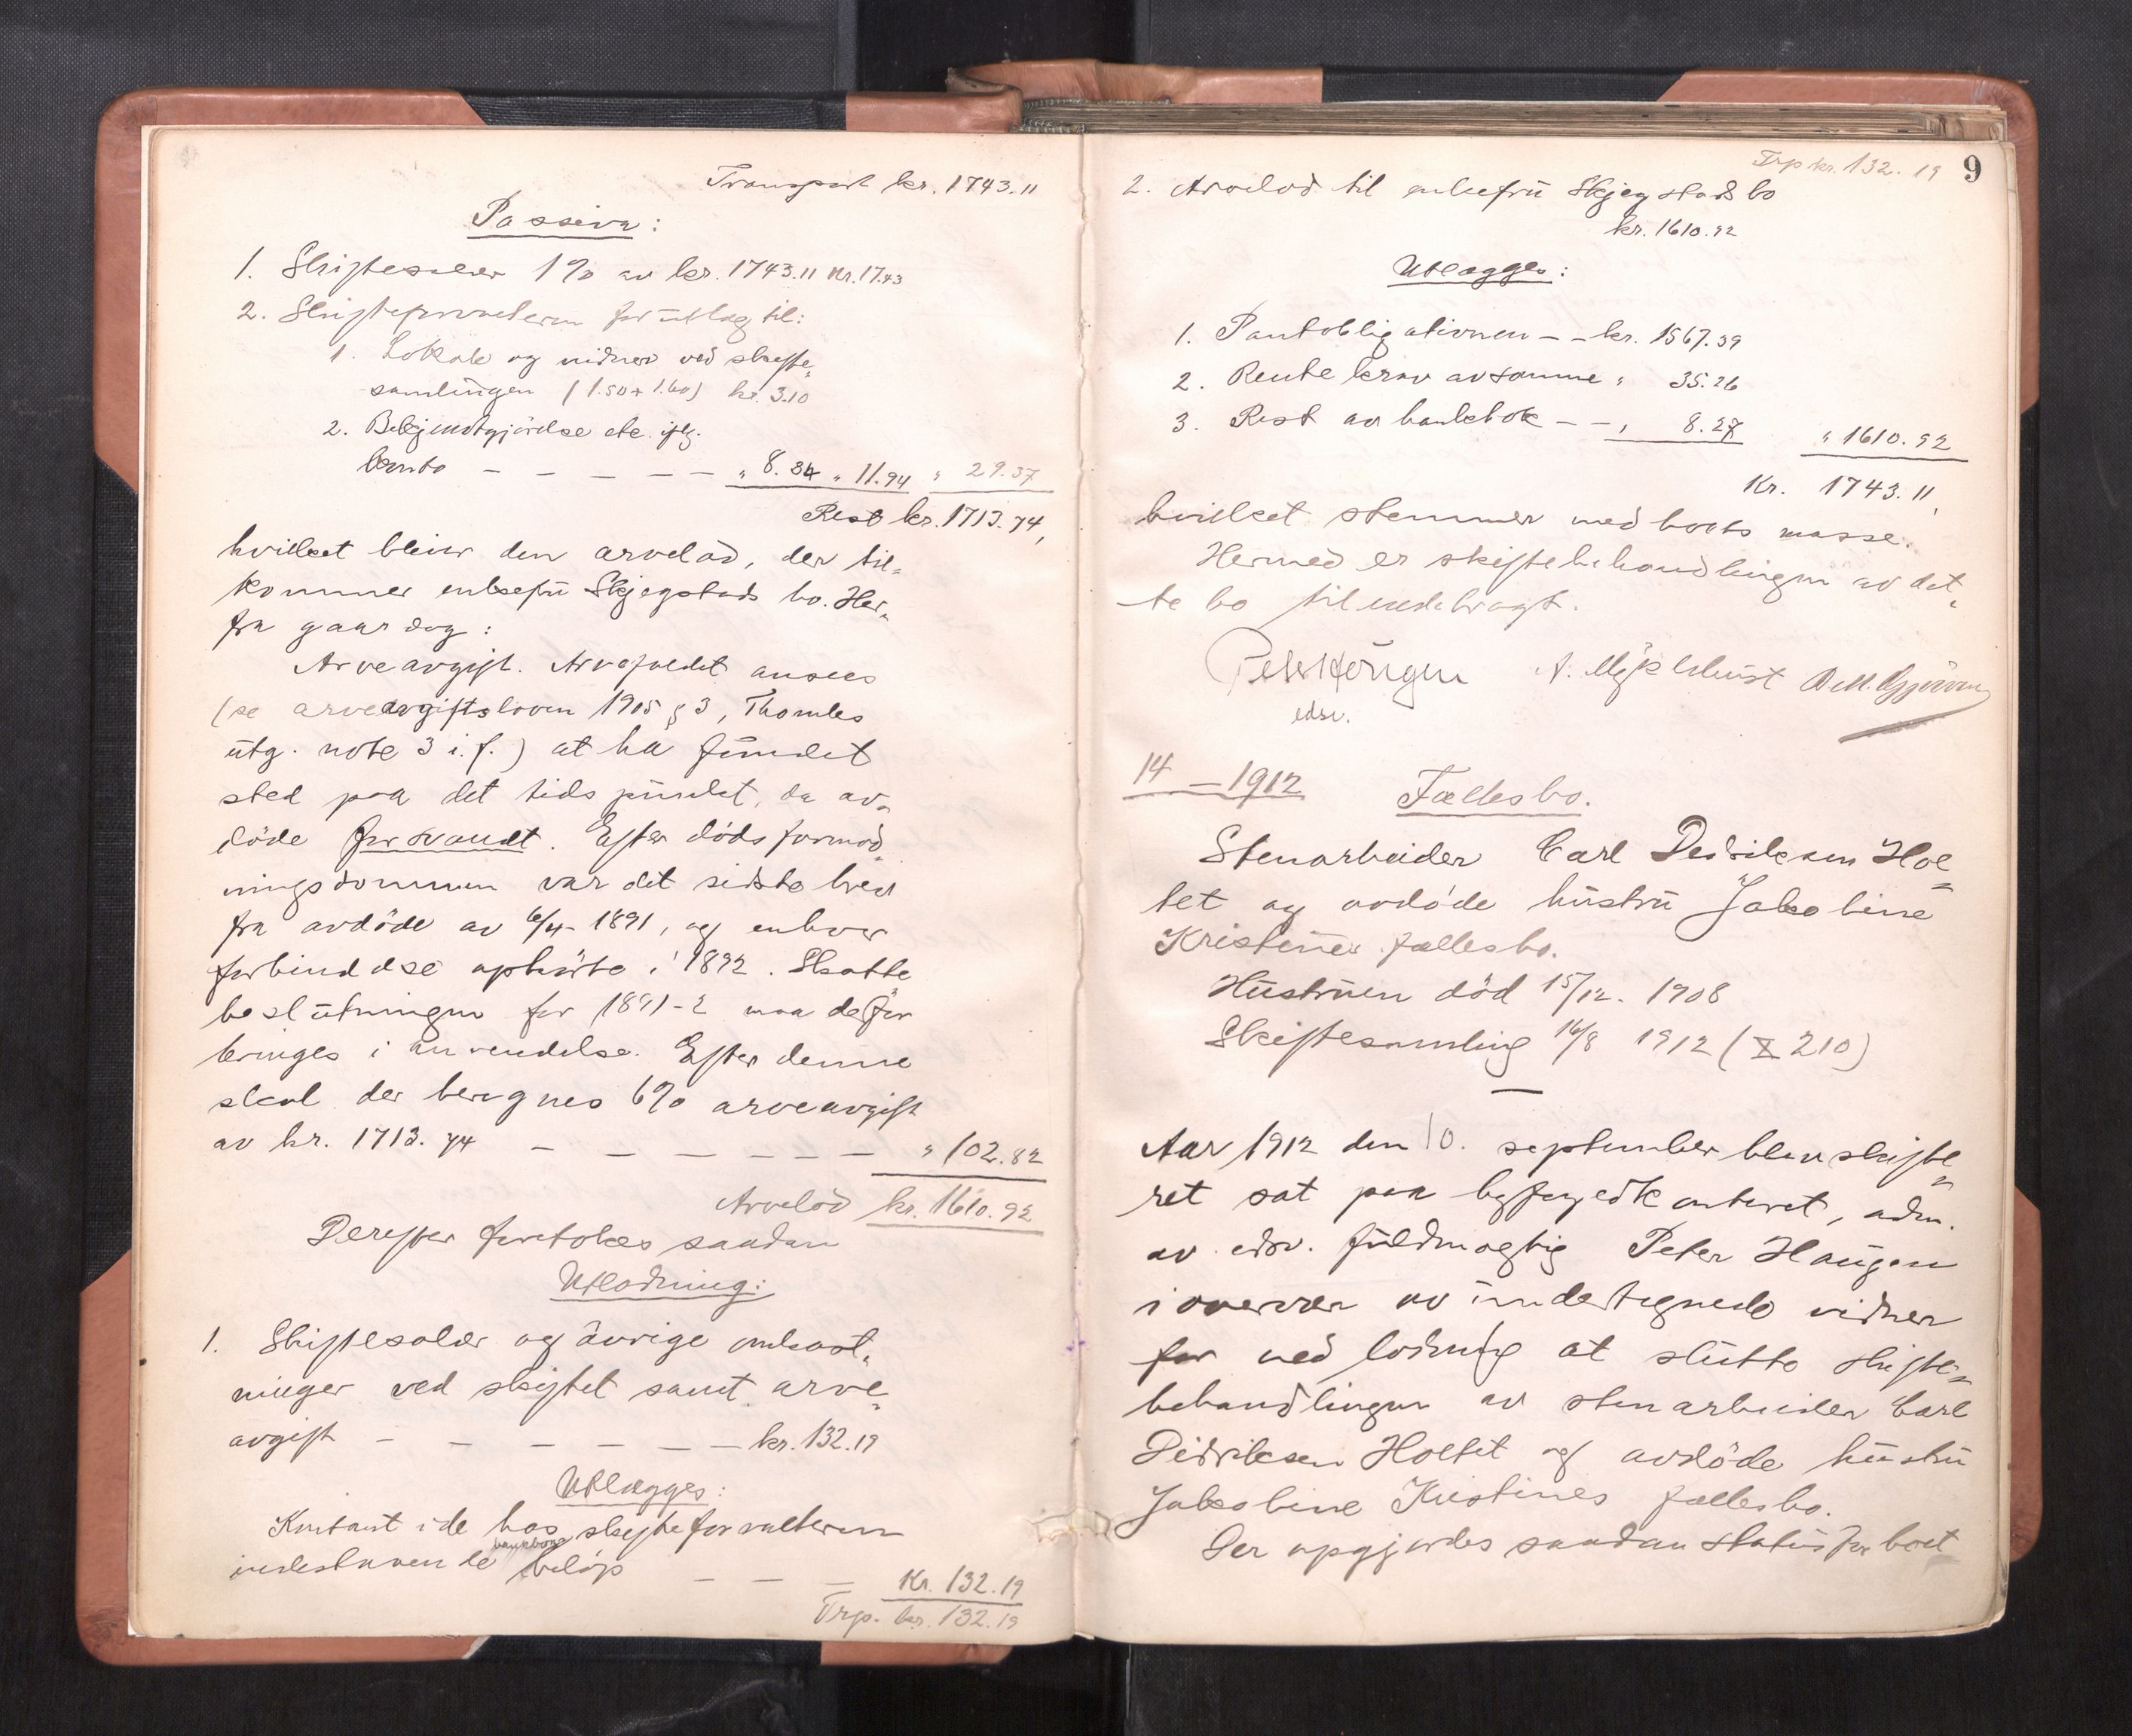 Transport kr. 1743.11
Passiva:
1. Skiftesalær 1% av kr. 1743.11 kr. 17.43
2. Skifteforvalteren for utlæg til:
1. Lokale og vidner ved skifte„
samlingen (1.50 + 1.60) kr. 3.10
2. Bekjendtgjörelse etc. iflg.
conto — — — — — „ 8.84 „ 11.94 „ 29.37
Rest kr. 1713.74,
hvilket bliver den arvelod, der til„
kommer enkefru Skjegstads bo. Her„
fra gaar dog:
Arveavgift. Arvefaldet ansees
(se arveavgiftsloven 1905 § 3, Thombles
utg. note 3 i.f.) at ha fundet
sted paa det tidspunkt, da av„
döde forsvandt. Efter dödsformod„
ningsdommen var det sidste brev
fra avdöde av 6/4- 1891, og enhver
forbindelse ophörte i 1892. Skatte
beslutningen for 1891-2 maa derfor
bringes i anvendelse. Efter denne
skal der beregnes 6% arveavgift
av kr. 1713.74 — — — — — — „ 102.82
Arvelod kr. 1610.92
Derefter foretokes saadan
Utlodning:
1. Skiftesalær og övrige omkost„
ninger ved skiftet samt arve„
avgift — — — — — — kr. 132.19
Utlægges:
Kontant i de hos skifteforvalteren
bankbok
indestaaende belöp — — — Kr. 132.19
Trp. kr. 132.19
Trp kr. 132.19 9
2. Arvelod til enkefru Skjegstads bo
kr. 1610.92
Utlægges:
1. Pantobligationen — — kr. 1567.39
2. Rente krav av samme „ 35.26
3. Rest av bankbok — — „ 8.27 „ 1610.92
Kr. 1743.11,
hvilket stemmer med boets masse.
Hermed er skiftebehandlingen av det„
te bo tilendebragt.
Peter Haugen A. Myklebust
edsv.
14 — 1912 Fællesbo.
Stenarbeider Carl Didriksen Hol„
tet og avdöde hustru Jakobine
Kristines fællesbo.
Hustruen död 15/12. 1908
Skiftesamling 16/8 1912 (X 210)
—
Aar 1912 den 10. september blev skifte„
ret sat paa byfogedkontoret, adm.
av edsv. fuldmægtig Peter Haugen
i overvær av undertegnede vidner
for ved lodning at slutte skifte„
behandlingen av stenarbeider Carl
Didriksen Holtet og avdöde hustru
Jakobine Kristines fællesbo.
Der opgjordes saadan status for boet